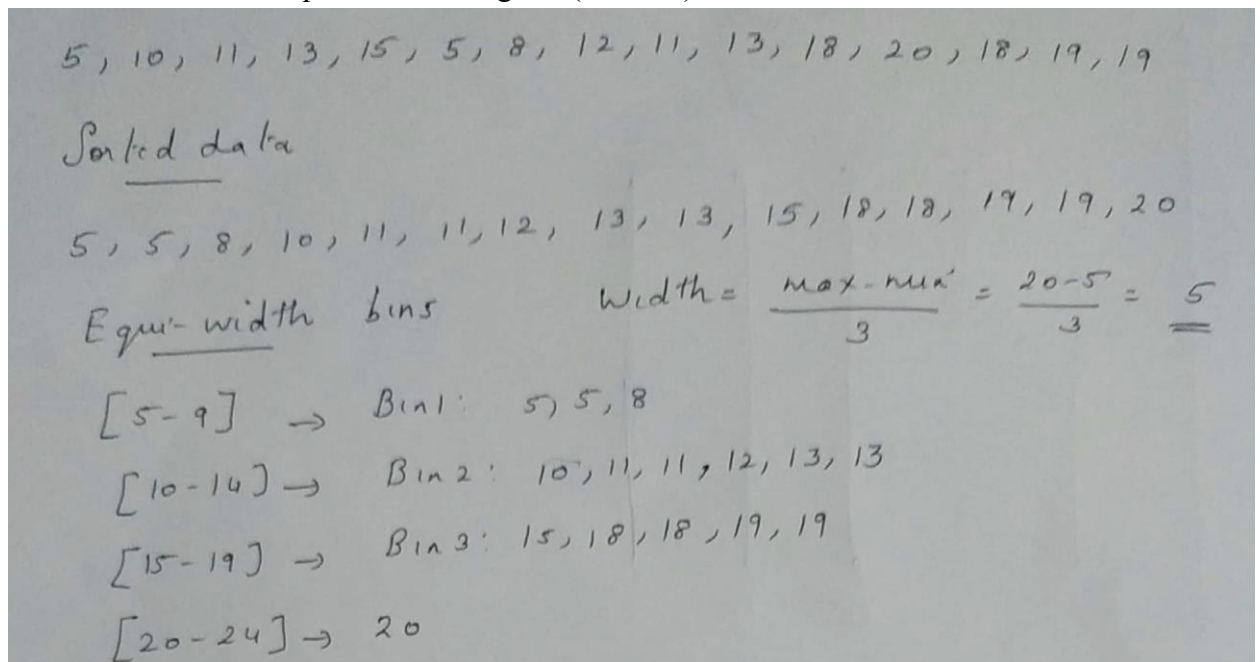 5, 10, 11, 13, 15, 5, 8, 12, 11, 13, 18, 20, 18, 19, 19
Sorted data
5, 5, 8, 10, 11, 11, 12, 13, 13, 15, 18, 18, 19, 19, 20
Equi-width bins Width = max-min / 3 = 20-5 / 3 = 5
[5-9] → Bin1: 5, 5, 8
[10-14] → Bin2: 10, 11, 11, 12, 13, 13
[15-19] → Bin3: 15, 18, 18, 19, 19
[20-24] → 20